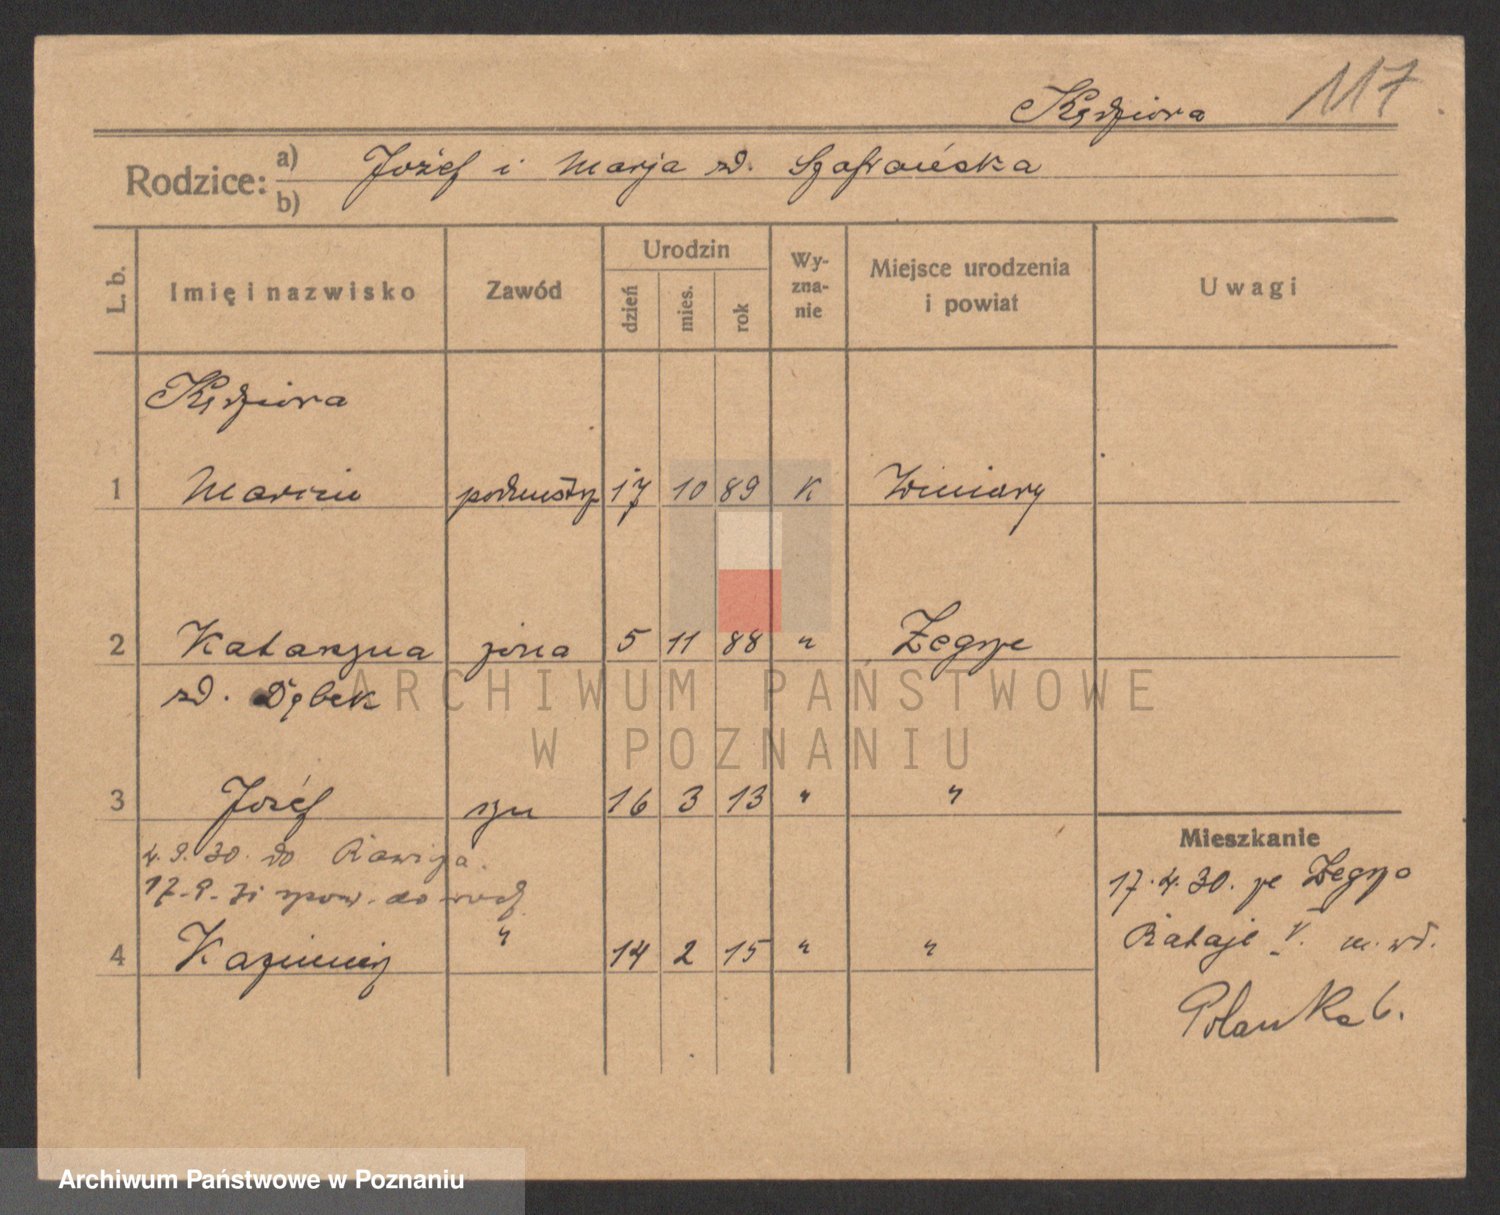 117
Kędziora
Rodzice: a) Józef i Marja zd. Szafrańska
b)
L. b. Imię i nazwisko Zawód Urodzin dzień mies. rok Wy-zna-nie Miejsce urodzenia i powiat Uwagi
Kędziora
1 Marcin 17 10 89 K Winiary
2 Katarzyna żona 5 11 88 " Żegrze
zd. Dębek
ARCHIWUM PAŃSTWOWE
W POZNANIU
3 Józef syn 16 3 13 " "
4.9.30. do Rawicza.
17.9.31 spow. do
4 Kazimierz " 14 2 15 " "
Mieszkanie
17.4.30. ze Żegrza
Rataje V. m. wł.
Polanka 6.
Archiwum Państwowe w Poznaniu